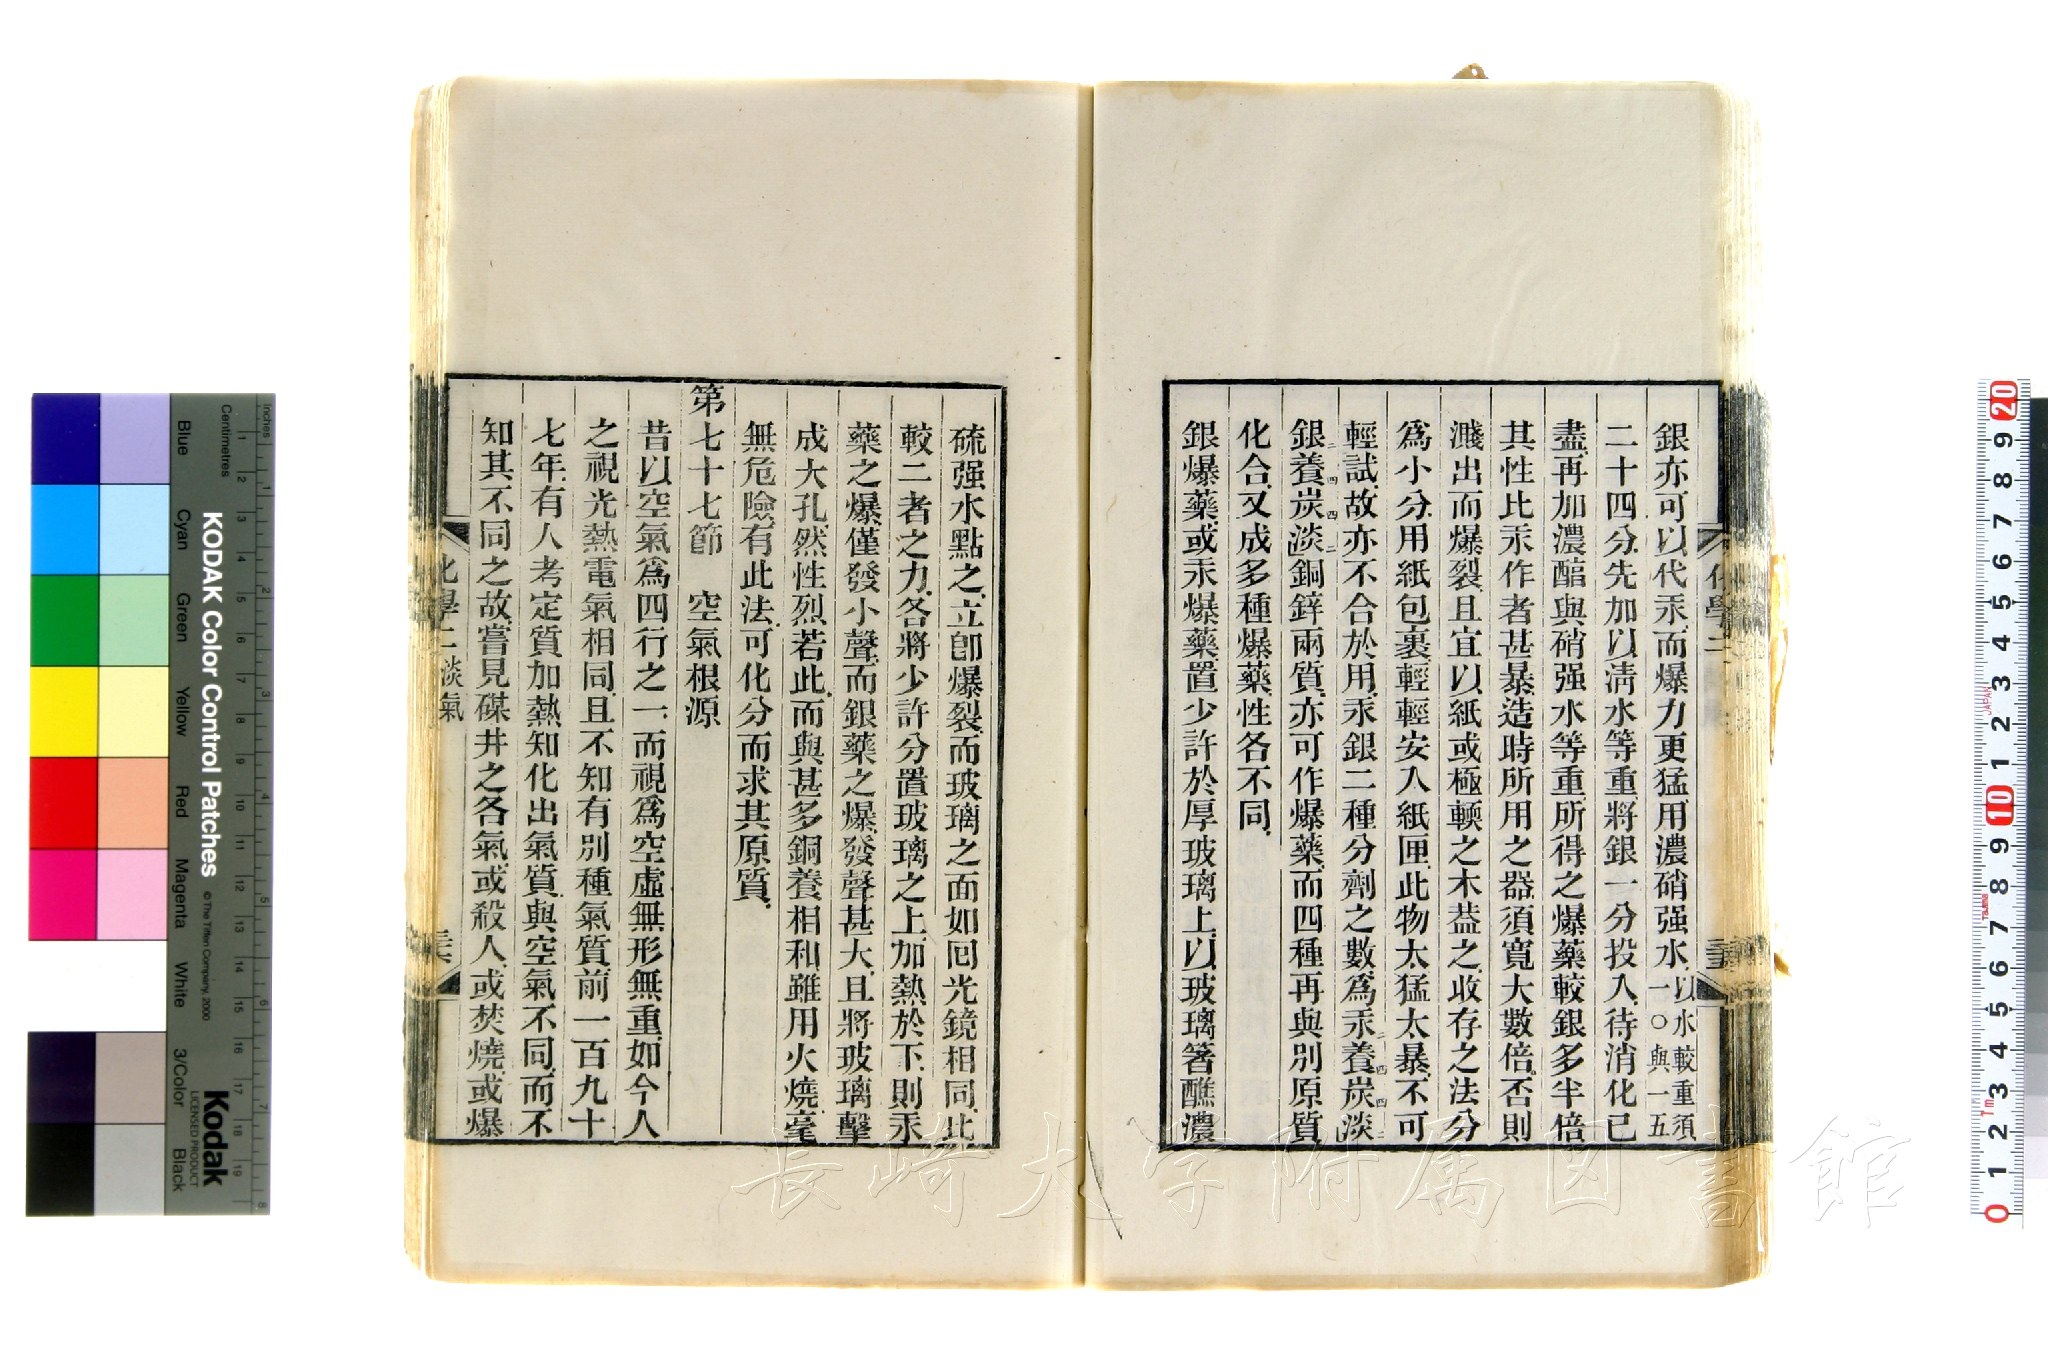 銀亦可以代汞而爆力更猛用濃硝强水以水較重須一〇與一五
二十四分先加以淸水等重將銀一分投入待消化已
盡再加濃醕與硝强水等重所得之爆藥較銀多半倍
其性比汞作者甚暴造時所用之器須寬大數倍否則
濺出而爆裂且宜以紙或極輭之木葢之收存之法分
爲小分用紙包裹輕輕安入紙匣此物太猛太暴不可
輕試故亦不合於用汞銀二種分劑之數爲汞養炭淡
銀養炭淡銅鋅兩質亦可作爆藥而四種再與別原質
化合又成多種爆藥性各不同
銀爆藥或汞爆藥置少許於厚玻璃上以玻璃箸蘸濃
化學二
硫强水點之立卽爆裂而玻璃之面如回光鏡相同此
較二者之力各將少許分置玻璃之上加熱於下則汞
藥之爆僅發小聲而銀藥之爆發聲甚大且將玻璃擊
成大孔然性烈若此而與甚多銅養相和雖用火燒毫
無危險有此法可化分而求其原質
第七十七節　空氣根源
昔以空氣爲四行之一而視爲空虛無形無重如今人
之視光熱電氣相同且不知有別種氣質前一百九十
七年有人考定質加熱知化出氣質與空氣不同而不
知其不同之故嘗見礦井之各氣或殺人或焚燒或爆
化學二 淡氣
長崎大学附属図書館
KODAK Color Control Patches
© The Tiffen Company, 2000
Kodak
LICENSED PRODUCT
Inches
Centimetres
Blue
Cyan
Green
Yellow
Red
Magenta
White
3/Color
Black
1 2 3 4 5 6 7 8 9 10 11 12 13 14 15 16 17 18 19
1 2 3 4 5 6 7 8
20 9 8 7 6 5 4 3 2 1 10 9 8 7 6 5 4 3 2 1 0
JAPAN